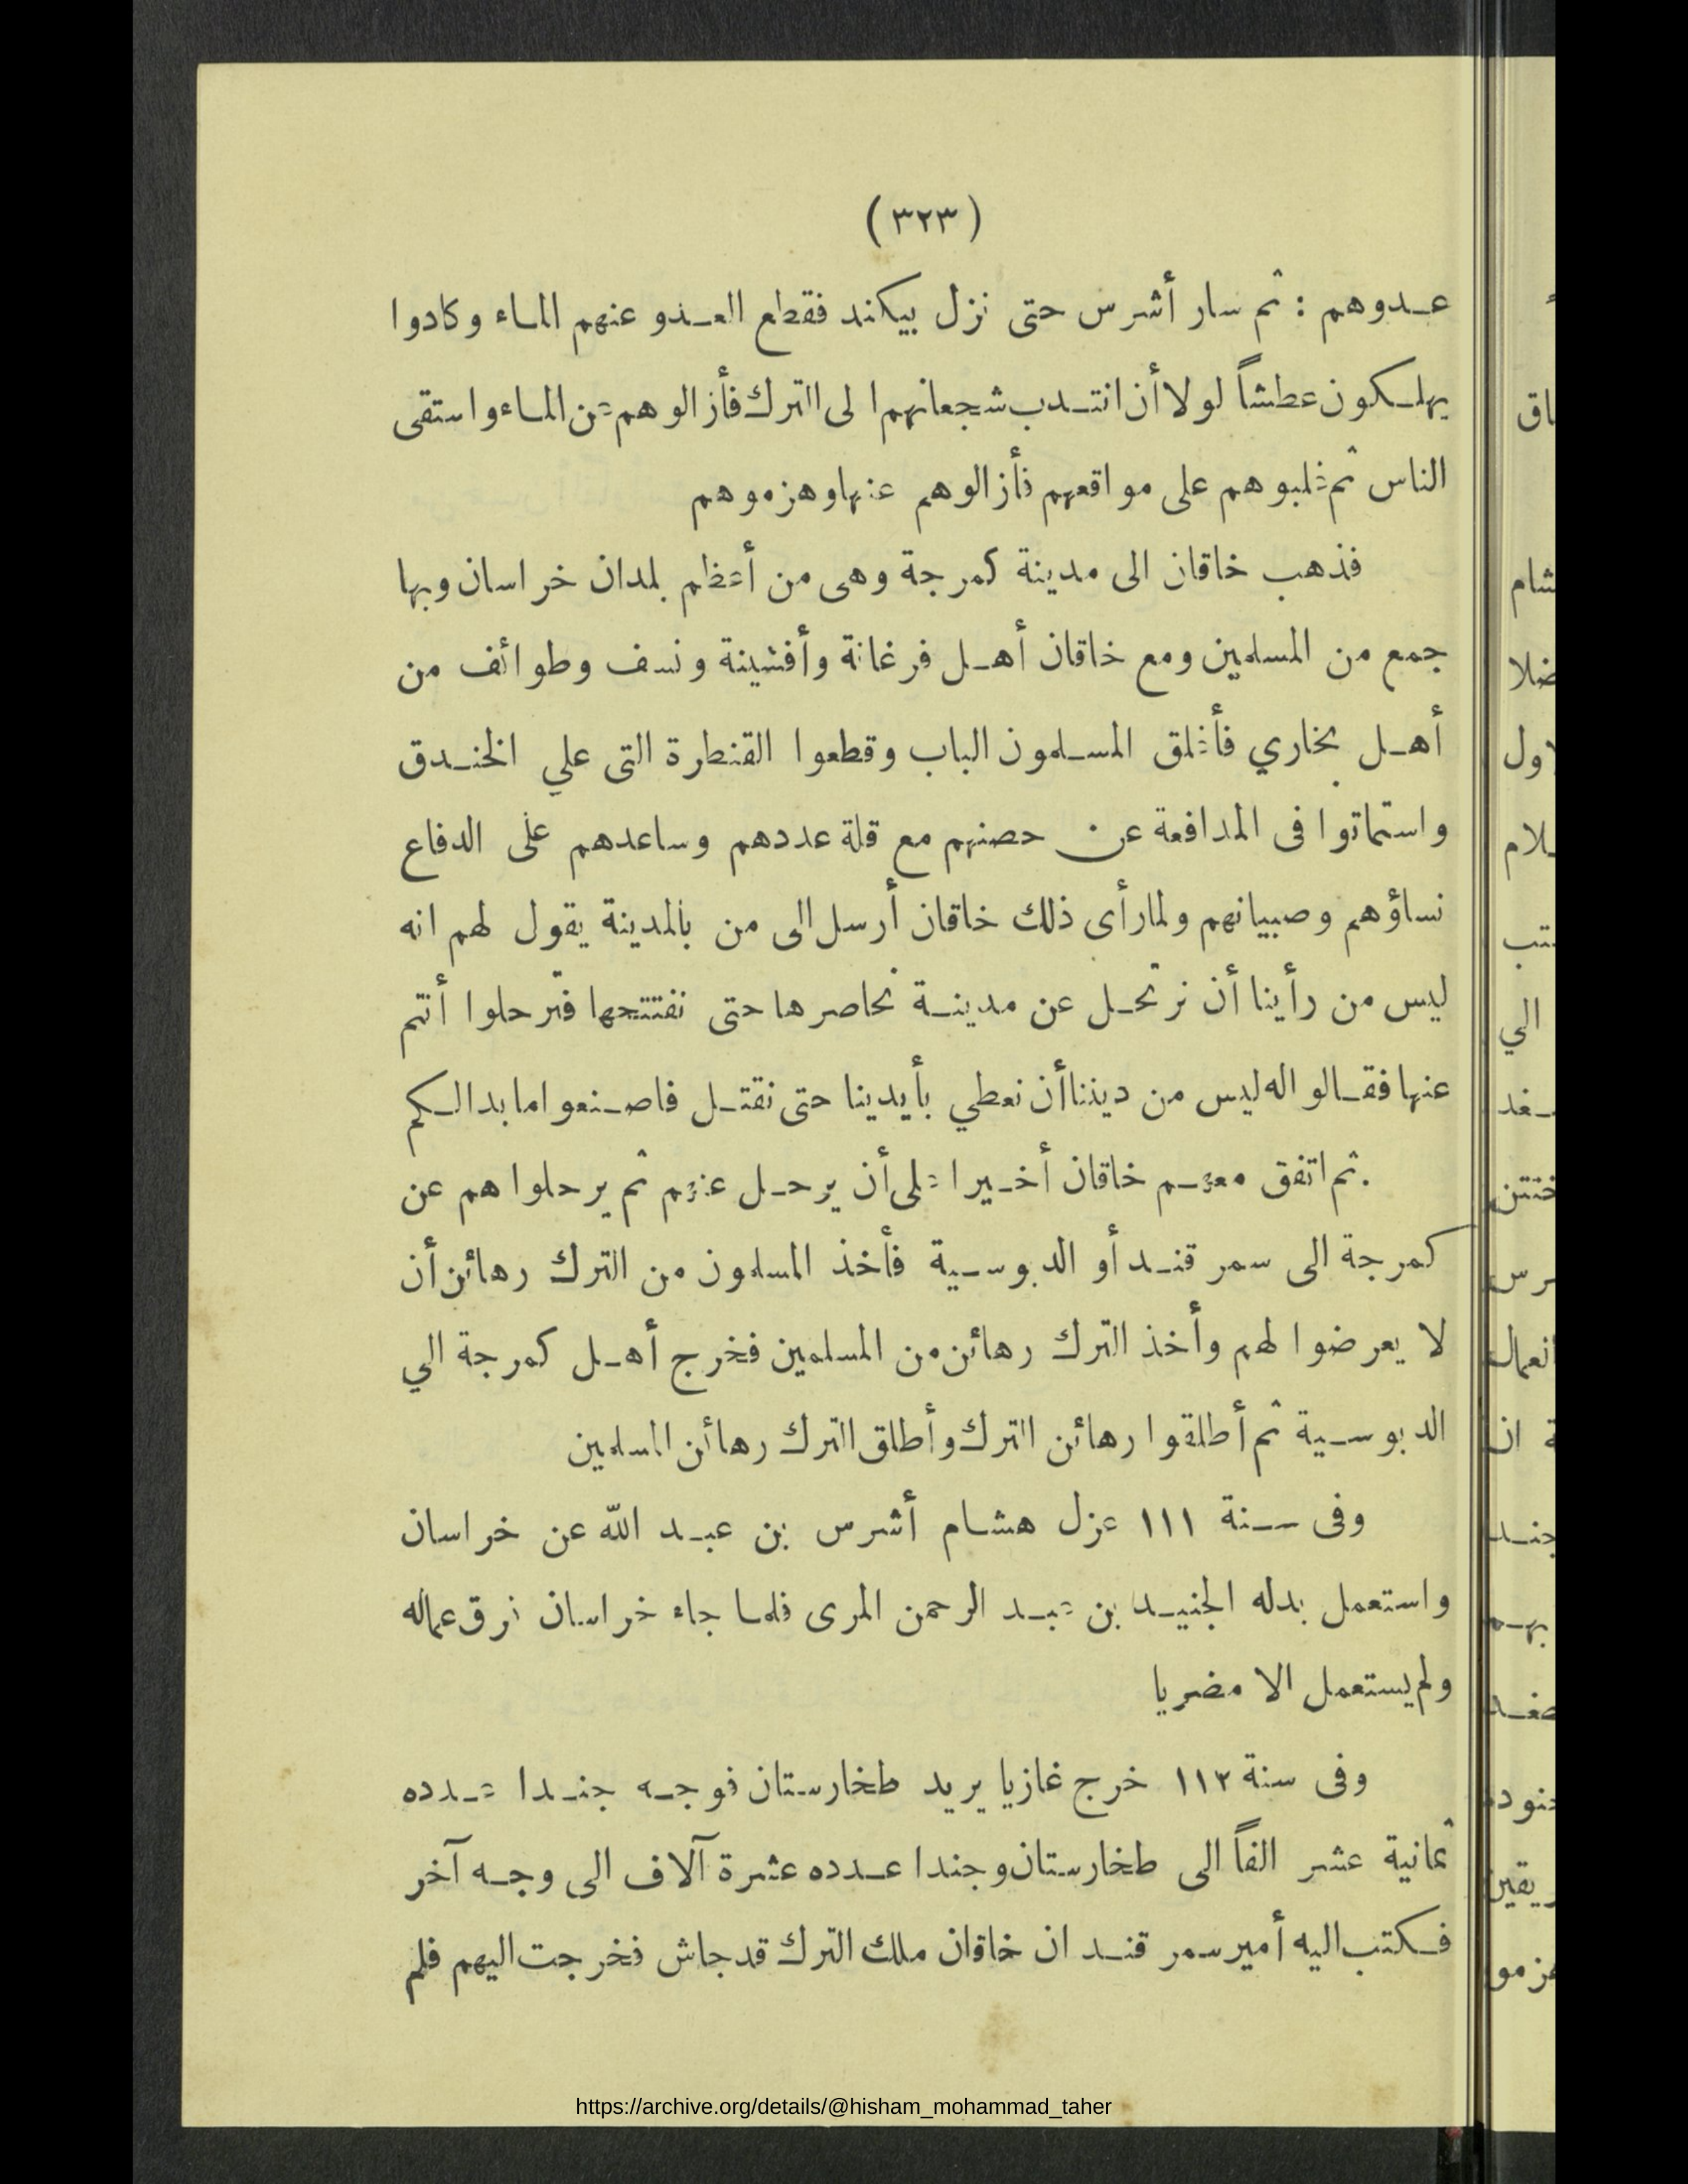 (٣٢٣)
عدوهم : ثم سار أشرس حتى نزل بيكند فقطع العدو عنهم الماء وكادوا
يهلكون عطشاً لولا أن انتدب شجعانهم الى الترك فأزالوهم عن الماء واستقى
الناس ثم غلبوهم على مواقعهم فأزالوهم عنها وهزموهم
فذهب خاقان الى مدينة كمرجة وهى من أعظم بلدان خراسان وبها
جمع من المسلمين ومع خاقان أهل فرغانة وأفشينة ونسف وطوائف من
أهل بخاري فأغلق المسلمون الباب وقطعوا القنطرة التى علي الخندق
واستماتوا فى المدافعة عن حصنهم مع قلة عددهم وساعدهم على الدفاع
نساؤهم وصبيانهم ولما رأى ذلك خاقان أرسل الى من بالمدينة يقول لهم انه
ليس من رأينا أن نرتحل عن مدينة نحاصرها حتى نفتتحها فترحلوا أنتم
عنها فقالوا له ليس من ديننا أن نعطي بأيدينا حتى نقتل فاصنعوا ما بدا لكم
. ثم اتفق معهم خاقان أخيرا على أن يرحل عنهم ثم يرحلوا هم عن
كمرجة الى سمر قند أو الدبوسية فأخذ المسلمون من الترك رهائن أن
لا يعرضوا لهم وأخذ الترك رهائن من المسلمين فخرج أهل كمرجة الي
الدبوسية ثم أطلقوا رهائن الترك وأطلق الترك رهائن المسلمين
وفى سنة ١١١ عزل هشام أشرس بن عبد الله عن خراسان
واستعمل بدله الجنيد بن عبد الرحمن المرى فلما جاء خراسان فرق عماله
ولم يستعمل الا مضريا
وفى سنة ١١٢ خرج غازيا يريد طخارستان فوجه جندا عدده
ثمانية عشر الفاً الى طخارستان وجندا عدده عشرة آلاف الى وجه آخر
فكتب اليه أمير سمر قند ان خاقان ملك الترك قد جاش فخرجت اليهم فلم
https://archive.org/details/@hisham_mohammad_taher